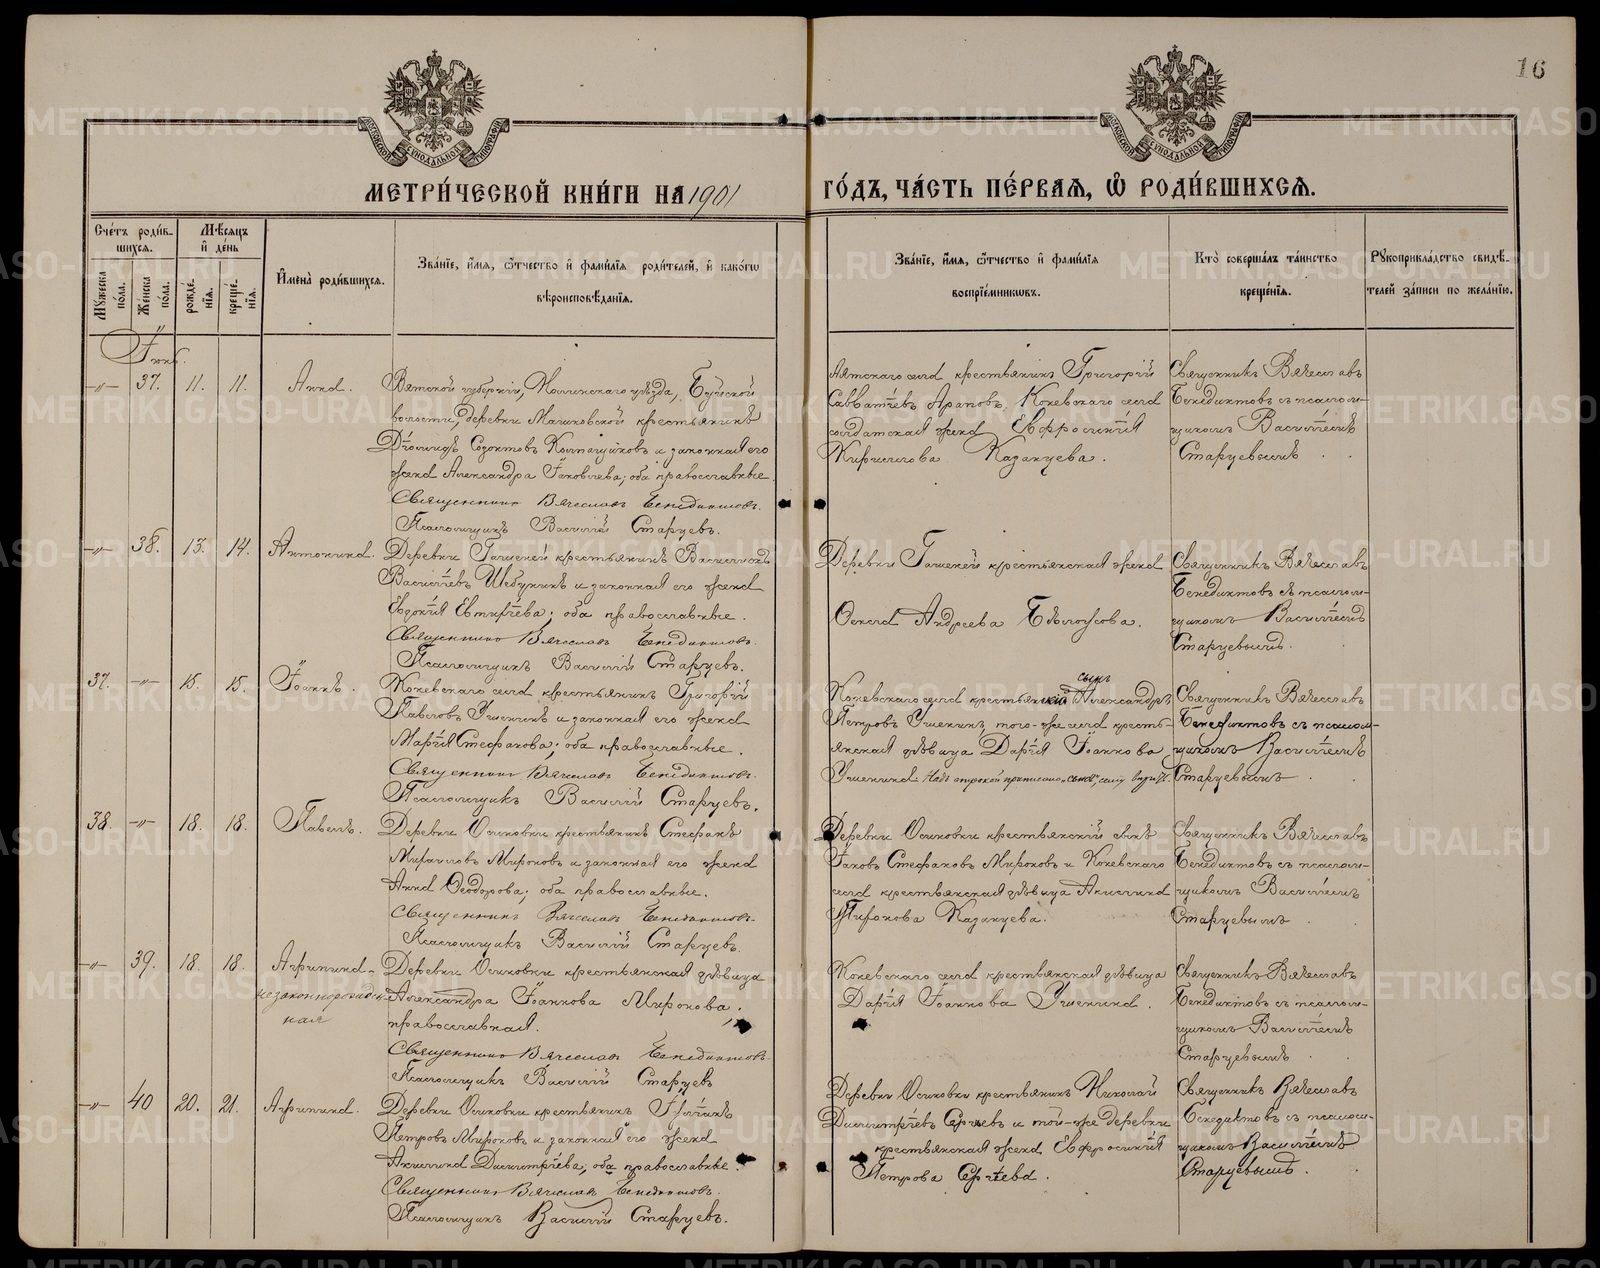 16
МЕТРИЧЕСКОЙ КНИГИ НА 1901
ГОДЪ, ЧАСТЬ ПЕРВАЯ, Ѡ РОДИВШИХСЯ.
Счетъ родив-
шихся.
Мѣсяцъ
и день
Мужеска
пола.
Женска
пола.
рожде-
нія.
креще-
нія.
Имена родившихся.
Званіе, имя, ѡтчество и фамилія родителей, и какогѡ
вѣроисповѣданія.
Званіе, имя, ѡтчество и фамилія
воспріемниковъ.
Кто совершалъ таинство
крещенія.
Рукоприкладство свидѣ-
телей записи по желанію.
Іюнь.
37. 11. 11. Анна.
Вятской губерніи, Нолинскаго уѣзда, Буйской
волости, деревни Машковской крестьянинъ
законная его
жена Александра Іаковлева; оба православные.
Священникъ Вячеславъ Бенедиктовъ.
Псаломщикъ Василій Старцевъ.
крестьянинъ Григорій
Савватіевъ Араповъ, Коневскаго села
солдатская жена Евфросинія
Кириллова Казанцева.
Священникъ Вячеславъ
Бенедиктовъ съ псалом-
щикомъ Василіемъ
Старцевымъ.
38. 13. 14. Антонина.
Деревни Гашеней крестьянинъ
Васильевъ и законная его жена
Евдокія Евтихіева; оба православные.
Священникъ Вячеславъ Бенедиктовъ.
Псаломщикъ Василій Старцевъ.
Деревни Гашеней крестьянская жена
Андреева Бѣлоусова.
Священникъ Вячеславъ
Бенедиктовъ съ псалом-
щикомъ Василіемъ
Старцевымъ.
37. 15. 15. Іоаннъ.
Коневскаго села крестьянинъ Григорій
Павловъ Ушенинъ и законная его жена
Марія Стефанова; оба православные.
Священникъ Вячеславъ Бенедиктовъ.
Псаломщикъ Василій Старцевъ.
сынъ
Коневскаго села крестьянскій Александръ
Петровъ Ушенинъ, того-же села кресть-
янская дѣвица Дарія Іоаннова
Ушенина.
Священникъ Вячеславъ
Бенедиктовъ съ псалом-
щикомъ Василіемъ
Старцевымъ.
38. 18. 18. Павелъ.
Деревни Осиновки крестьянинъ Стефанъ
Мироновъ и законная его жена
Анна Ѳеодорова; оба православные.
Священникъ Вячеславъ Бенедиктовъ.
Псаломщикъ Василій Старцевъ.
Деревни Осиновки крестьянскій сынъ
Іаковъ Стефановъ Мироновъ и Коневскаго
села крестьянская дѣвица Акилина
Казанцева.
Священникъ Вячеславъ
Бенедиктовъ съ псалом-
щикомъ Василіемъ
Старцевымъ.
39. 18. 18. Агрипина-
незаконнорожден-
ная
Деревни Осиновки крестьянская дѣвица
Александра Іоаннова Миронова,
православная.
Священникъ Вячеславъ Бенедиктовъ.
Псаломщикъ Василій Старцевъ
Коневскаго села крестьянская дѣвица
Дарія Іоаннова Ушенина.
Священникъ Вячеславъ
Бенедиктовъ съ псалом-
щикомъ Василіемъ
Старцевымъ.
40 20. 21. Агрипина.
Деревни Осиновки крестьянинъ
Петровъ Мироновъ и законная его жена
Акилина Димитріева, оба православные.
Священникъ Вячеславъ Бенедиктовъ.
Псаломщикъ Василій Старцевъ.
Деревни Осиновки крестьянинъ Николай
Димитріевъ Сергѣевъ и той-же деревни
крестьянская жена Евфросинія
Петрова Сергѣева.
Священникъ Вячеславъ
Бенедиктовъ съ псалом-
щикомъ Василіемъ
Старцевымъ.
METRIKI.GASO-URAL.RU